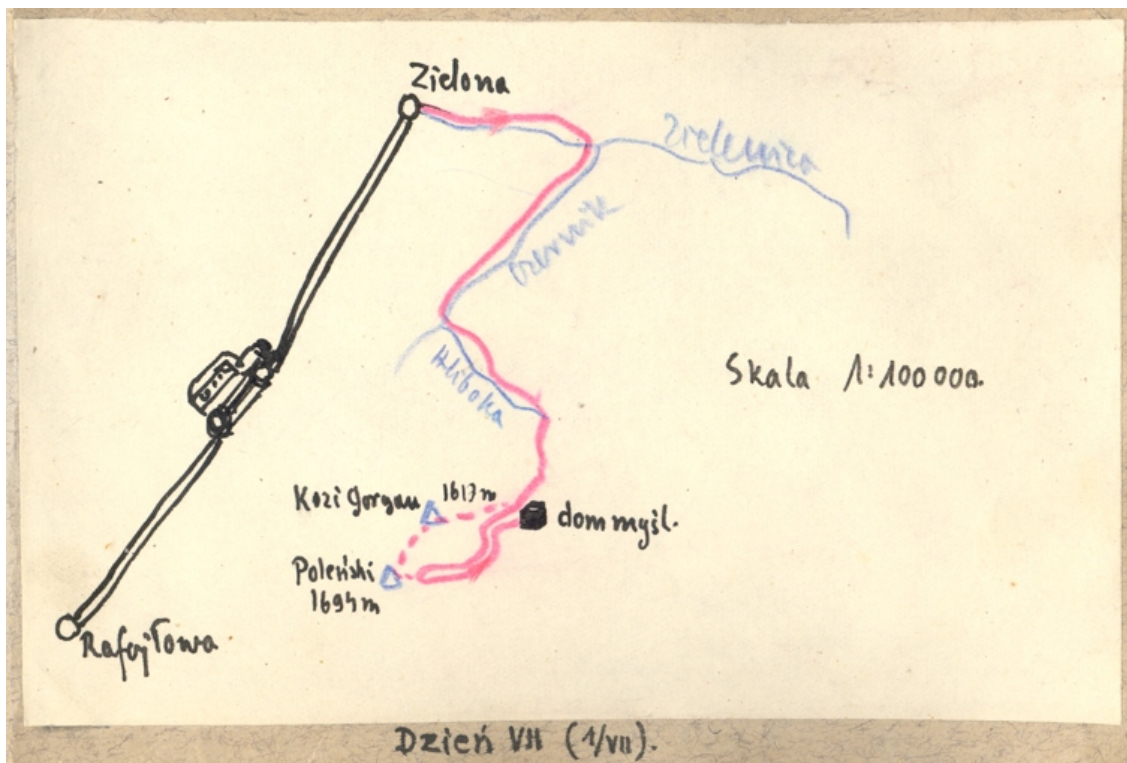 Zielona
Zielenica
Czernik
Hliboka
Skala 1:100 000.
Kozi Gorgan 1617 m
dom myśl.
Poleński
1694 m
Rafajłowa
Dzień VII (1/VII).